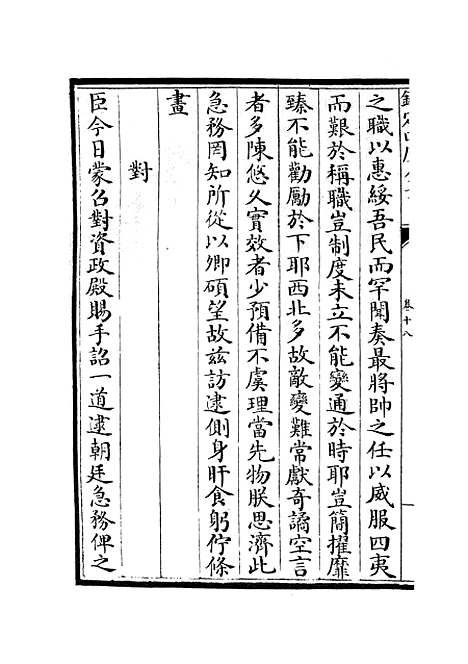 卷十八
之職以惠綏吾民而罕聞奏最將帥之任以威服四夷
而艱於稱職豈制度未立不能變通於時耶豈簡擢靡
臻不能勸勵於下耶西北多故敵變難常獻奇譎空言
者多陳悠久實效者少預備不虞理當先物朕思濟此
急務罔知所從以卿碩望故兹訪逮側身旰食躬佇條
畫
對
臣今日蒙召對資政殿賜手詔一道逮朝廷急務俾之